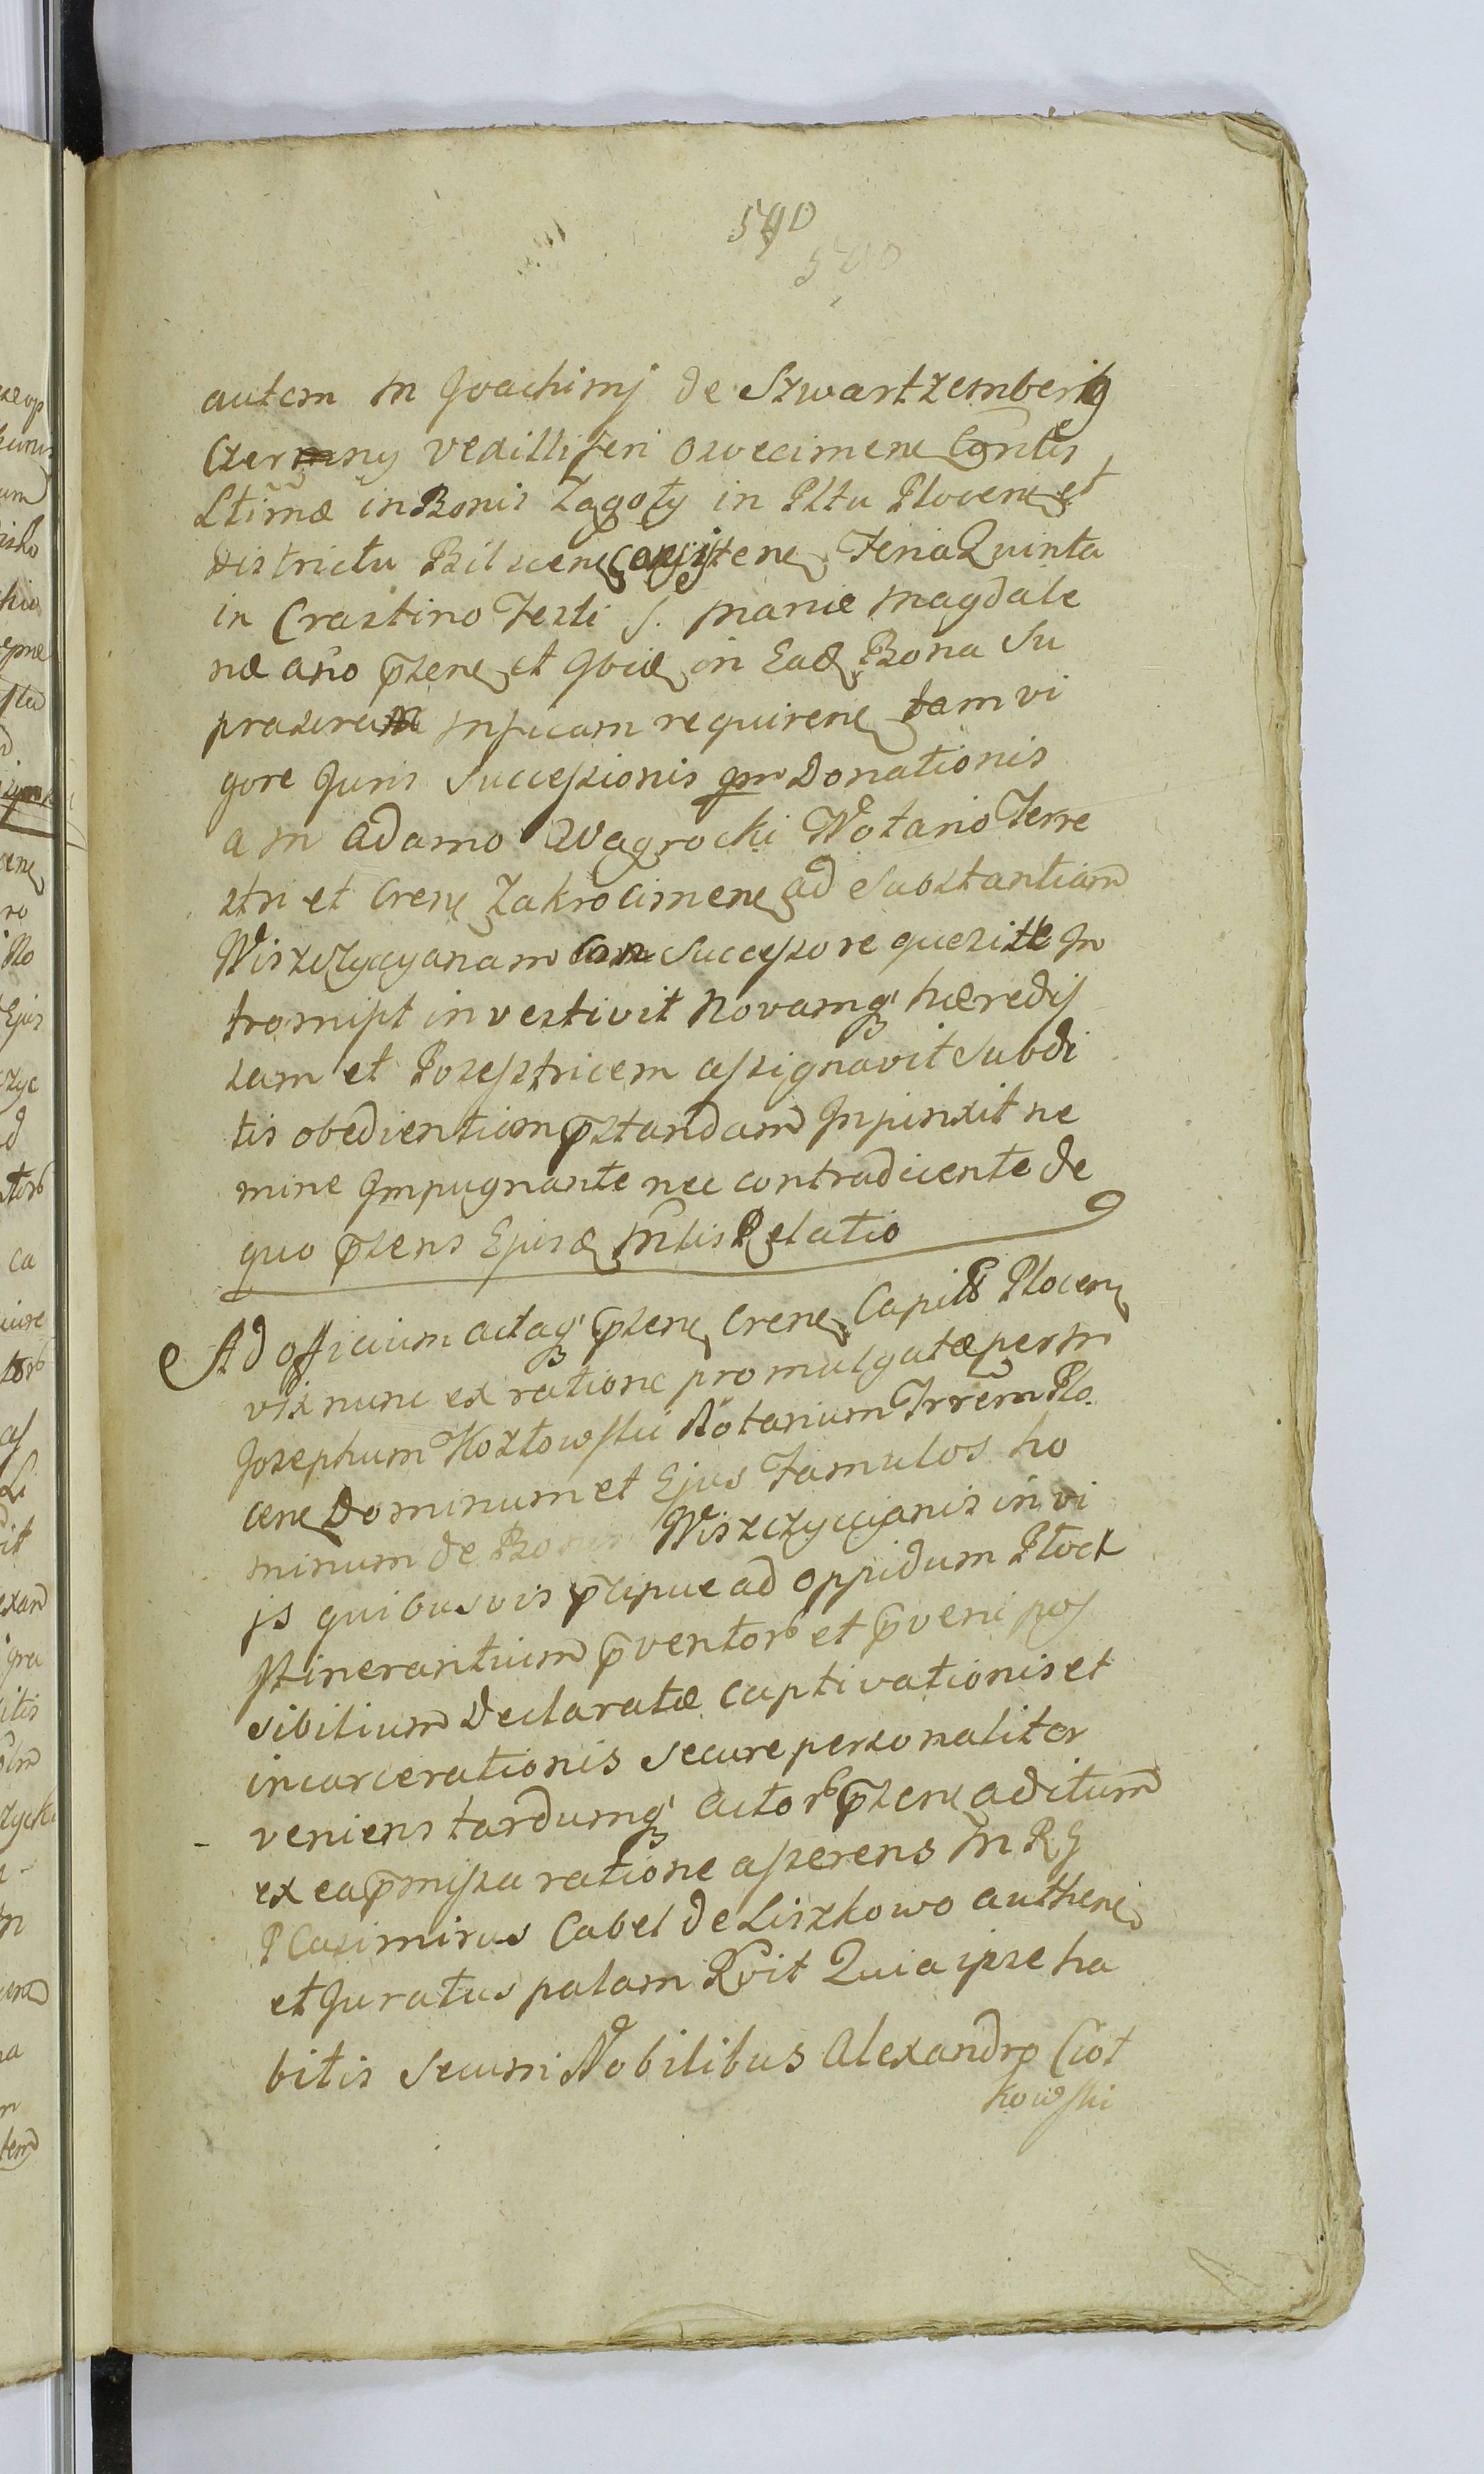 590
590
autem M Joachimj de Szwartzemberg
Czerny vexilliferi Oswecimene Contis
Ltimæ in Bonis Zagoty in Pltu Plocene et
Districtu Bilscene consistene Feria Quinta
in Crastino Festi S. Mariæ Magdale
næ año p̃tene et Gbiæ in Ead Bona Su
prascrem Inficam requirene tam vi
gore Juris Successionis qm Donationis
a M Adamo Wagrocki Notario Terre
stri et Crene Zakrocimene ad Substantiam
Wiszczycyanam Con Successore quesitæ In
tromisit investivit Novamq hæredis
sam et Possestricem assignavit Subdi
tis obedientiam p̃standam Injunxit ne
mine Impugnante nec contradicente de
quo p̃sens Ejusd Mlis Relatio
Ad officium actaq p̃sene Crene Capitt Plocene
vix nunc ex ratione promulgatæ per M
Josephum Kozłowski Notarium Trrem Plo.
cene Dominum et Ejus Famulos ho
minum de Bonis Wiszczyccianis in vi
js quibusvis p̃cipue ad oppidum Płock
Itinerantium p̃ventorb et p̃veni pos
sibilium Declaratæ captivationis et
incarcerationis secure personaliter
veniens tardumq actorb p̃sene aditum
ex ea p̃missa ratione asserens M R G
P Casimirus Cabel de Liszkowo authene
et Juratus palam Rvit Quia ipse ha
bitis secum Nobilibus Alexandro Ciot
kowski